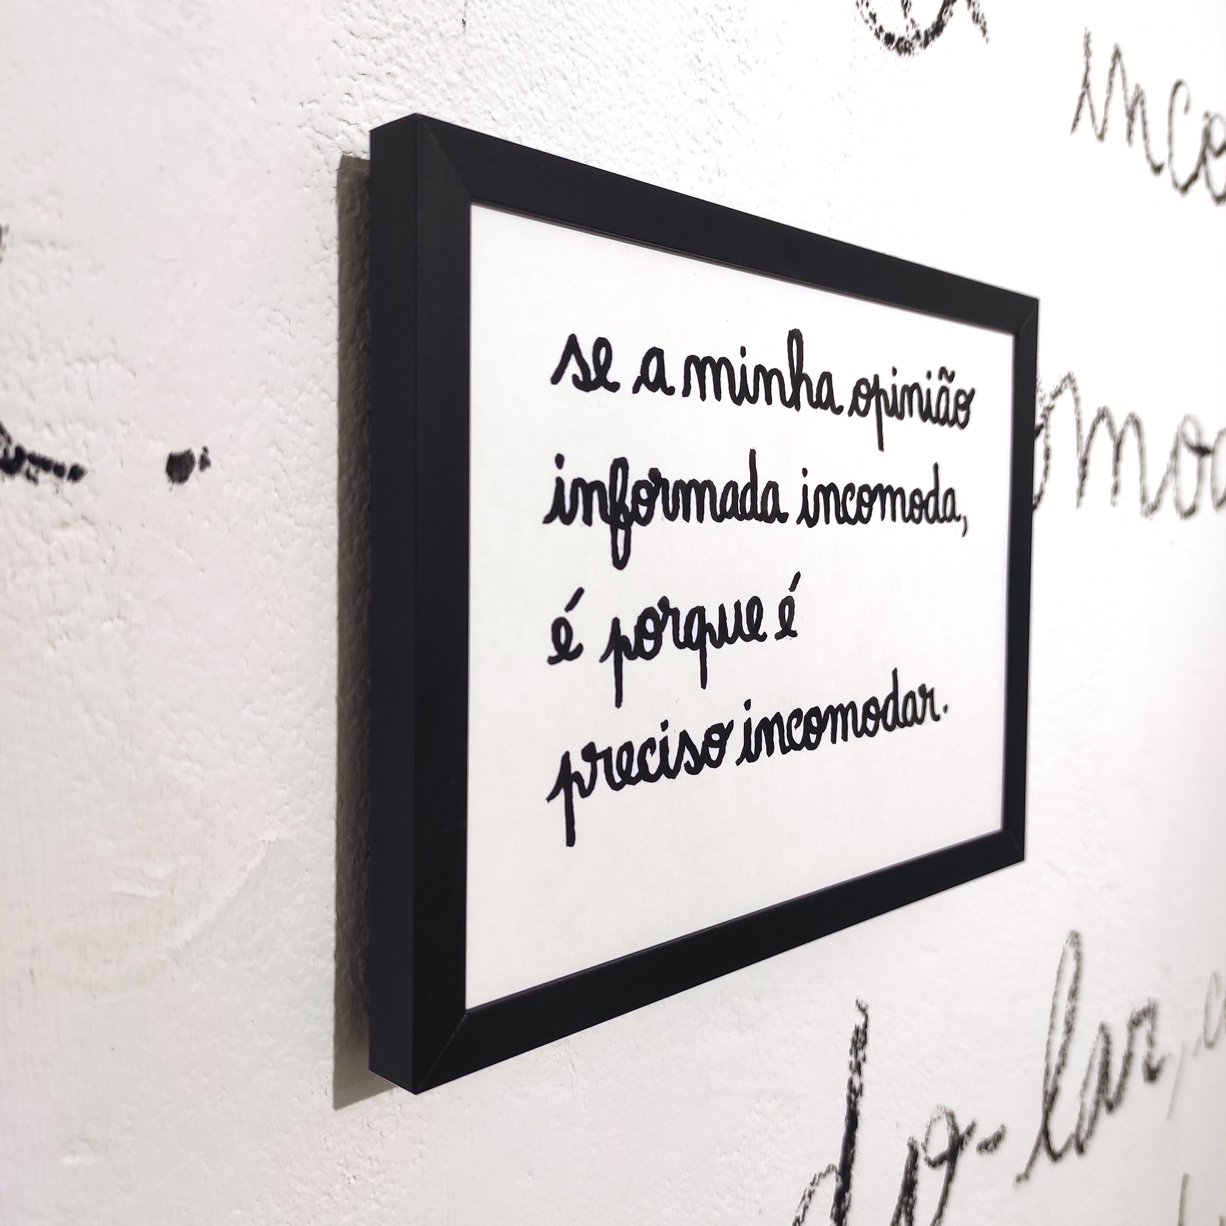 se a minha opinião
informada incomoda,
é porque é
preciso incomodar.